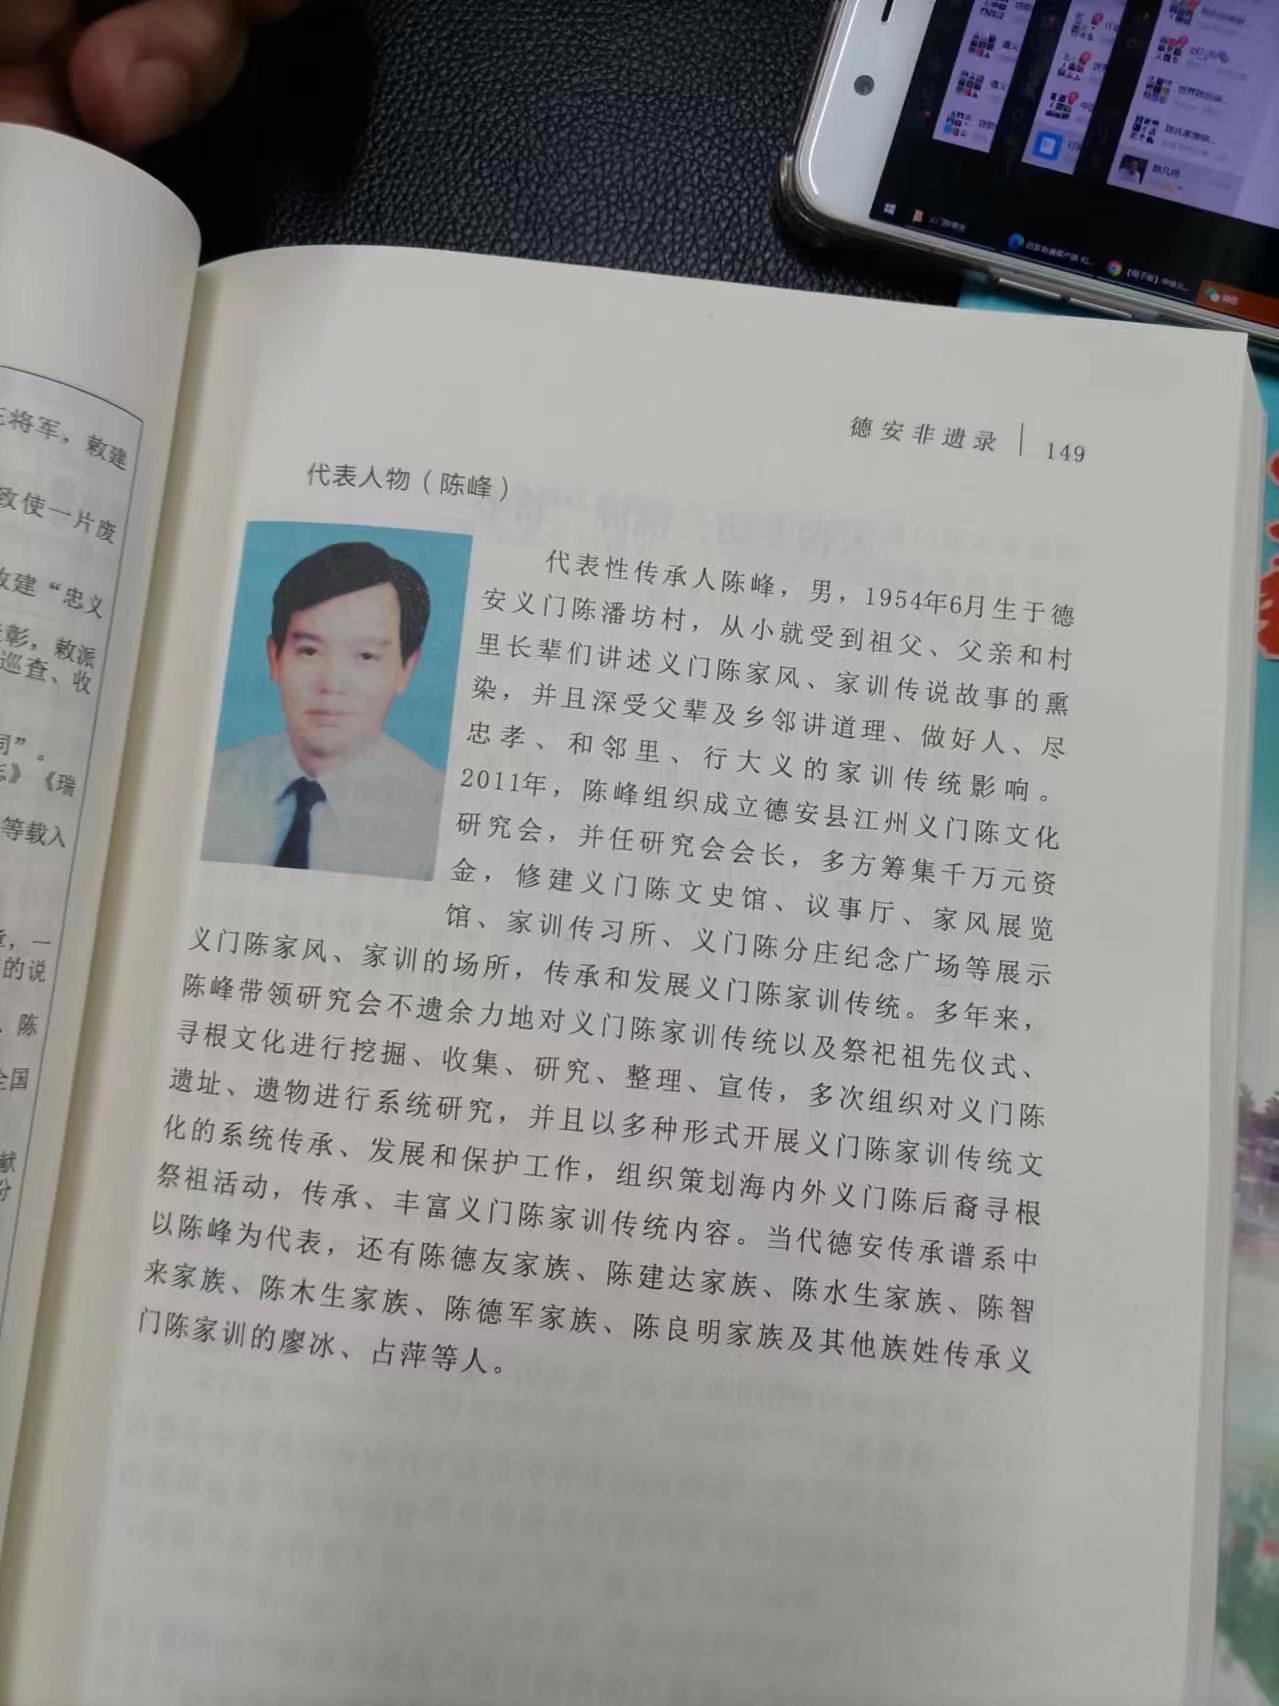 王将军，敕建
致使一片废
敕建“忠义
主彰，敕派
巡查、收
祠”。
志》《瑞
等载入
一
的说
陈
全国
献
份
德安非遗录 149
代表人物（陈峰）
代表性传承人陈峰，男，1954年6月生于德
安义门陈潘坊村，从小就受到祖父、父亲和村
里长辈们讲述义门陈家风、家训传说故事的熏
染，并且深受父辈及乡邻讲道理、做好人、尽
忠孝、和邻里、行大义的家训传统影响。
2011年，陈峰组织成立德安县江州义门陈文化
研究会，并任研究会会长，多方筹集千万元资
金，修建义门陈文史馆、议事厅、家风展览
馆、家训传习所、义门陈分庄纪念广场等展示
义门陈家风、家训的场所，传承和发展义门陈家训传统。多年来，
陈峰带领研究会不遗余力地对义门陈家训传统以及祭祀祖先仪式、
寻根文化进行挖掘、收集、研究、整理、宣传，多次组织对义门陈
遗址、遗物进行系统研究，并且以多种形式开展义门陈家训传统文
化的系统传承、发展和保护工作，组织策划海内外义门陈后裔寻根
祭祖活动，传承、丰富义门陈家训传统内容。当代德安传承谱系中
以陈峰为代表，还有陈德友家族、陈建达家族、陈水生家族、陈智
来家族、陈木生家族、陈德军家族、陈良明家族及其他族姓传承义
门陈家训的廖冰、占萍等人。